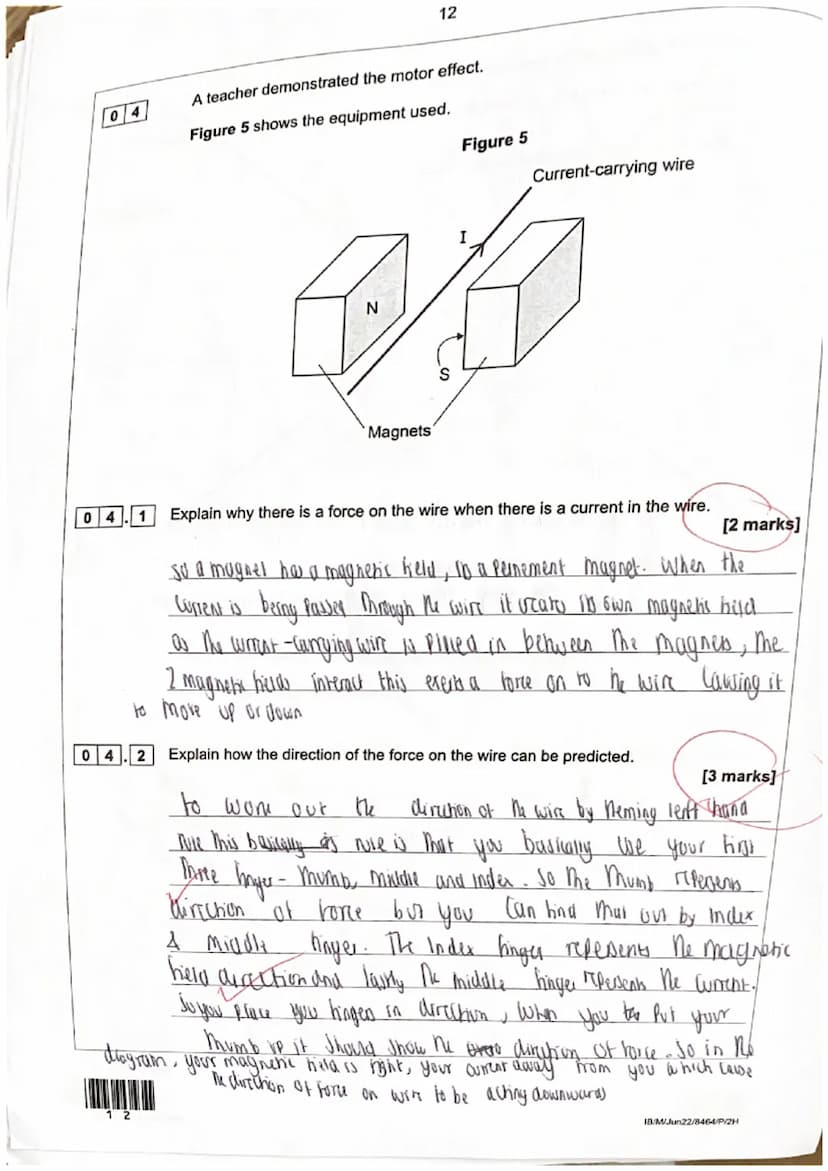 12
0 4
A teacher demonstrated the motor effect.
Figure 5 shows the equipment used.
Figure 5
Current-carrying wire
I
N
S
Magnets
0 4 . 1 Explain why there is a force on the wire when there is a current in the wire.
[2 marks]
so a magnet has a magnetic field, is a permement magnet. When the
current is being passed through the wire it creates its own magnetic field
as the current-carrying wire is placed in between the magnets, the
2 magnetic fields interact this exerts a force on to the wire causing it
to move up or down
0 4 . 2 Explain how the direction of the force on the wire can be predicted.
[3 marks]
to work out the direction of the wire by fleming left hand
rule this basically is rule is that you basically use your first
three finger - thumb, middle and index. So the thumb represents
direction of force but you can find that out by index
& middle finger. The Index finger represents the magnetic
field direction and lastly the middle finger represents the current.
So you place you fingers in direction, when you put your
thumb up it should show the direction of force. So in the
diagram, your magnetic field is right, your current away from you which cause
the direction of force on wire to be acting downwards
1 2
IB/M/Jun22/8464/P/2H